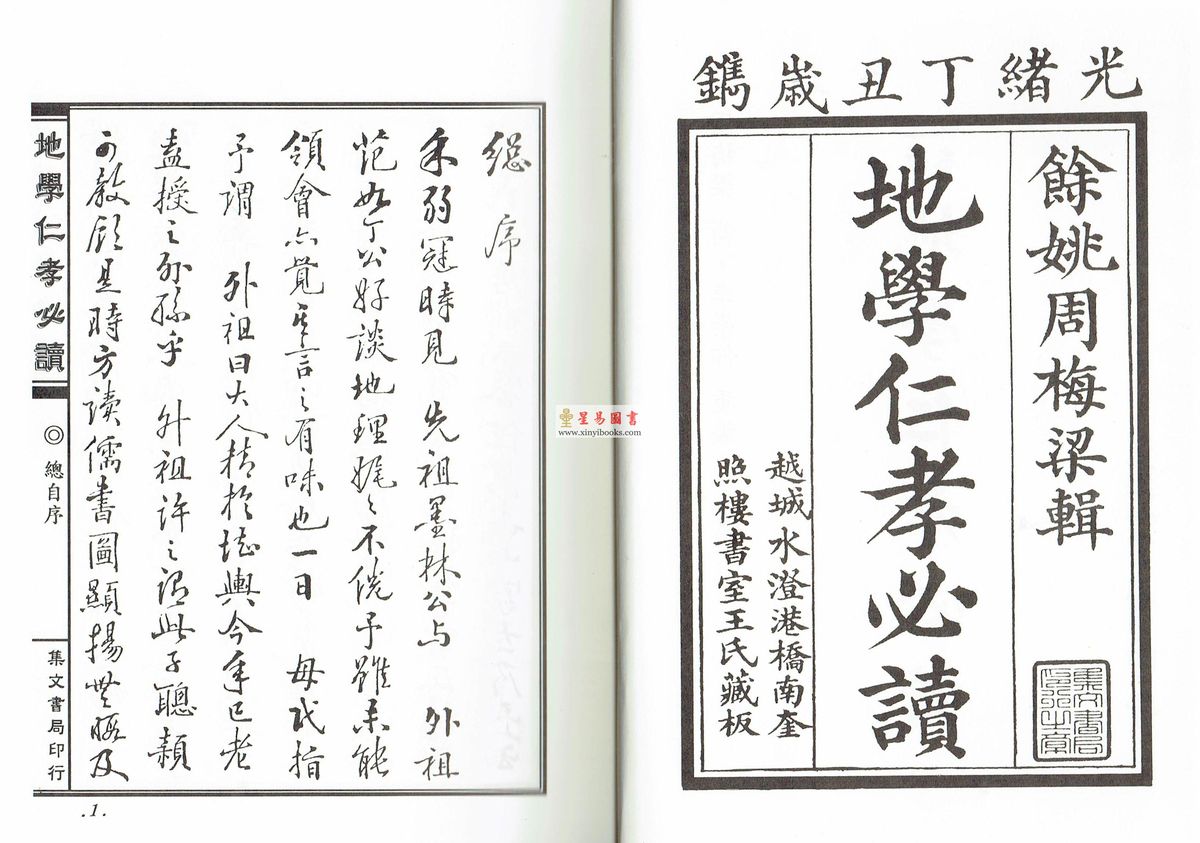 光緒丁丑歲鐫
餘姚周梅梁輯
地學仁孝必讀
越城水澄港橋南奎
照樓書室王氏藏板
集文書局印行之章
星易圖書
www.xinyibooks.com
總序
余弱冠時見 先祖墨林公与 外祖
范如丁公好談地理娓〻不倦予雖未能
領會亦覺其言之有味也一日 母氏指
予謂 外祖曰大人精於堪輿今年已老
盍授之外孫乎 外祖許之謂此子聰穎
可教顧是時方讀儒書圖顯揚無暇及
地學仁孝必讀
◎總自序
集文書局印行
.1.